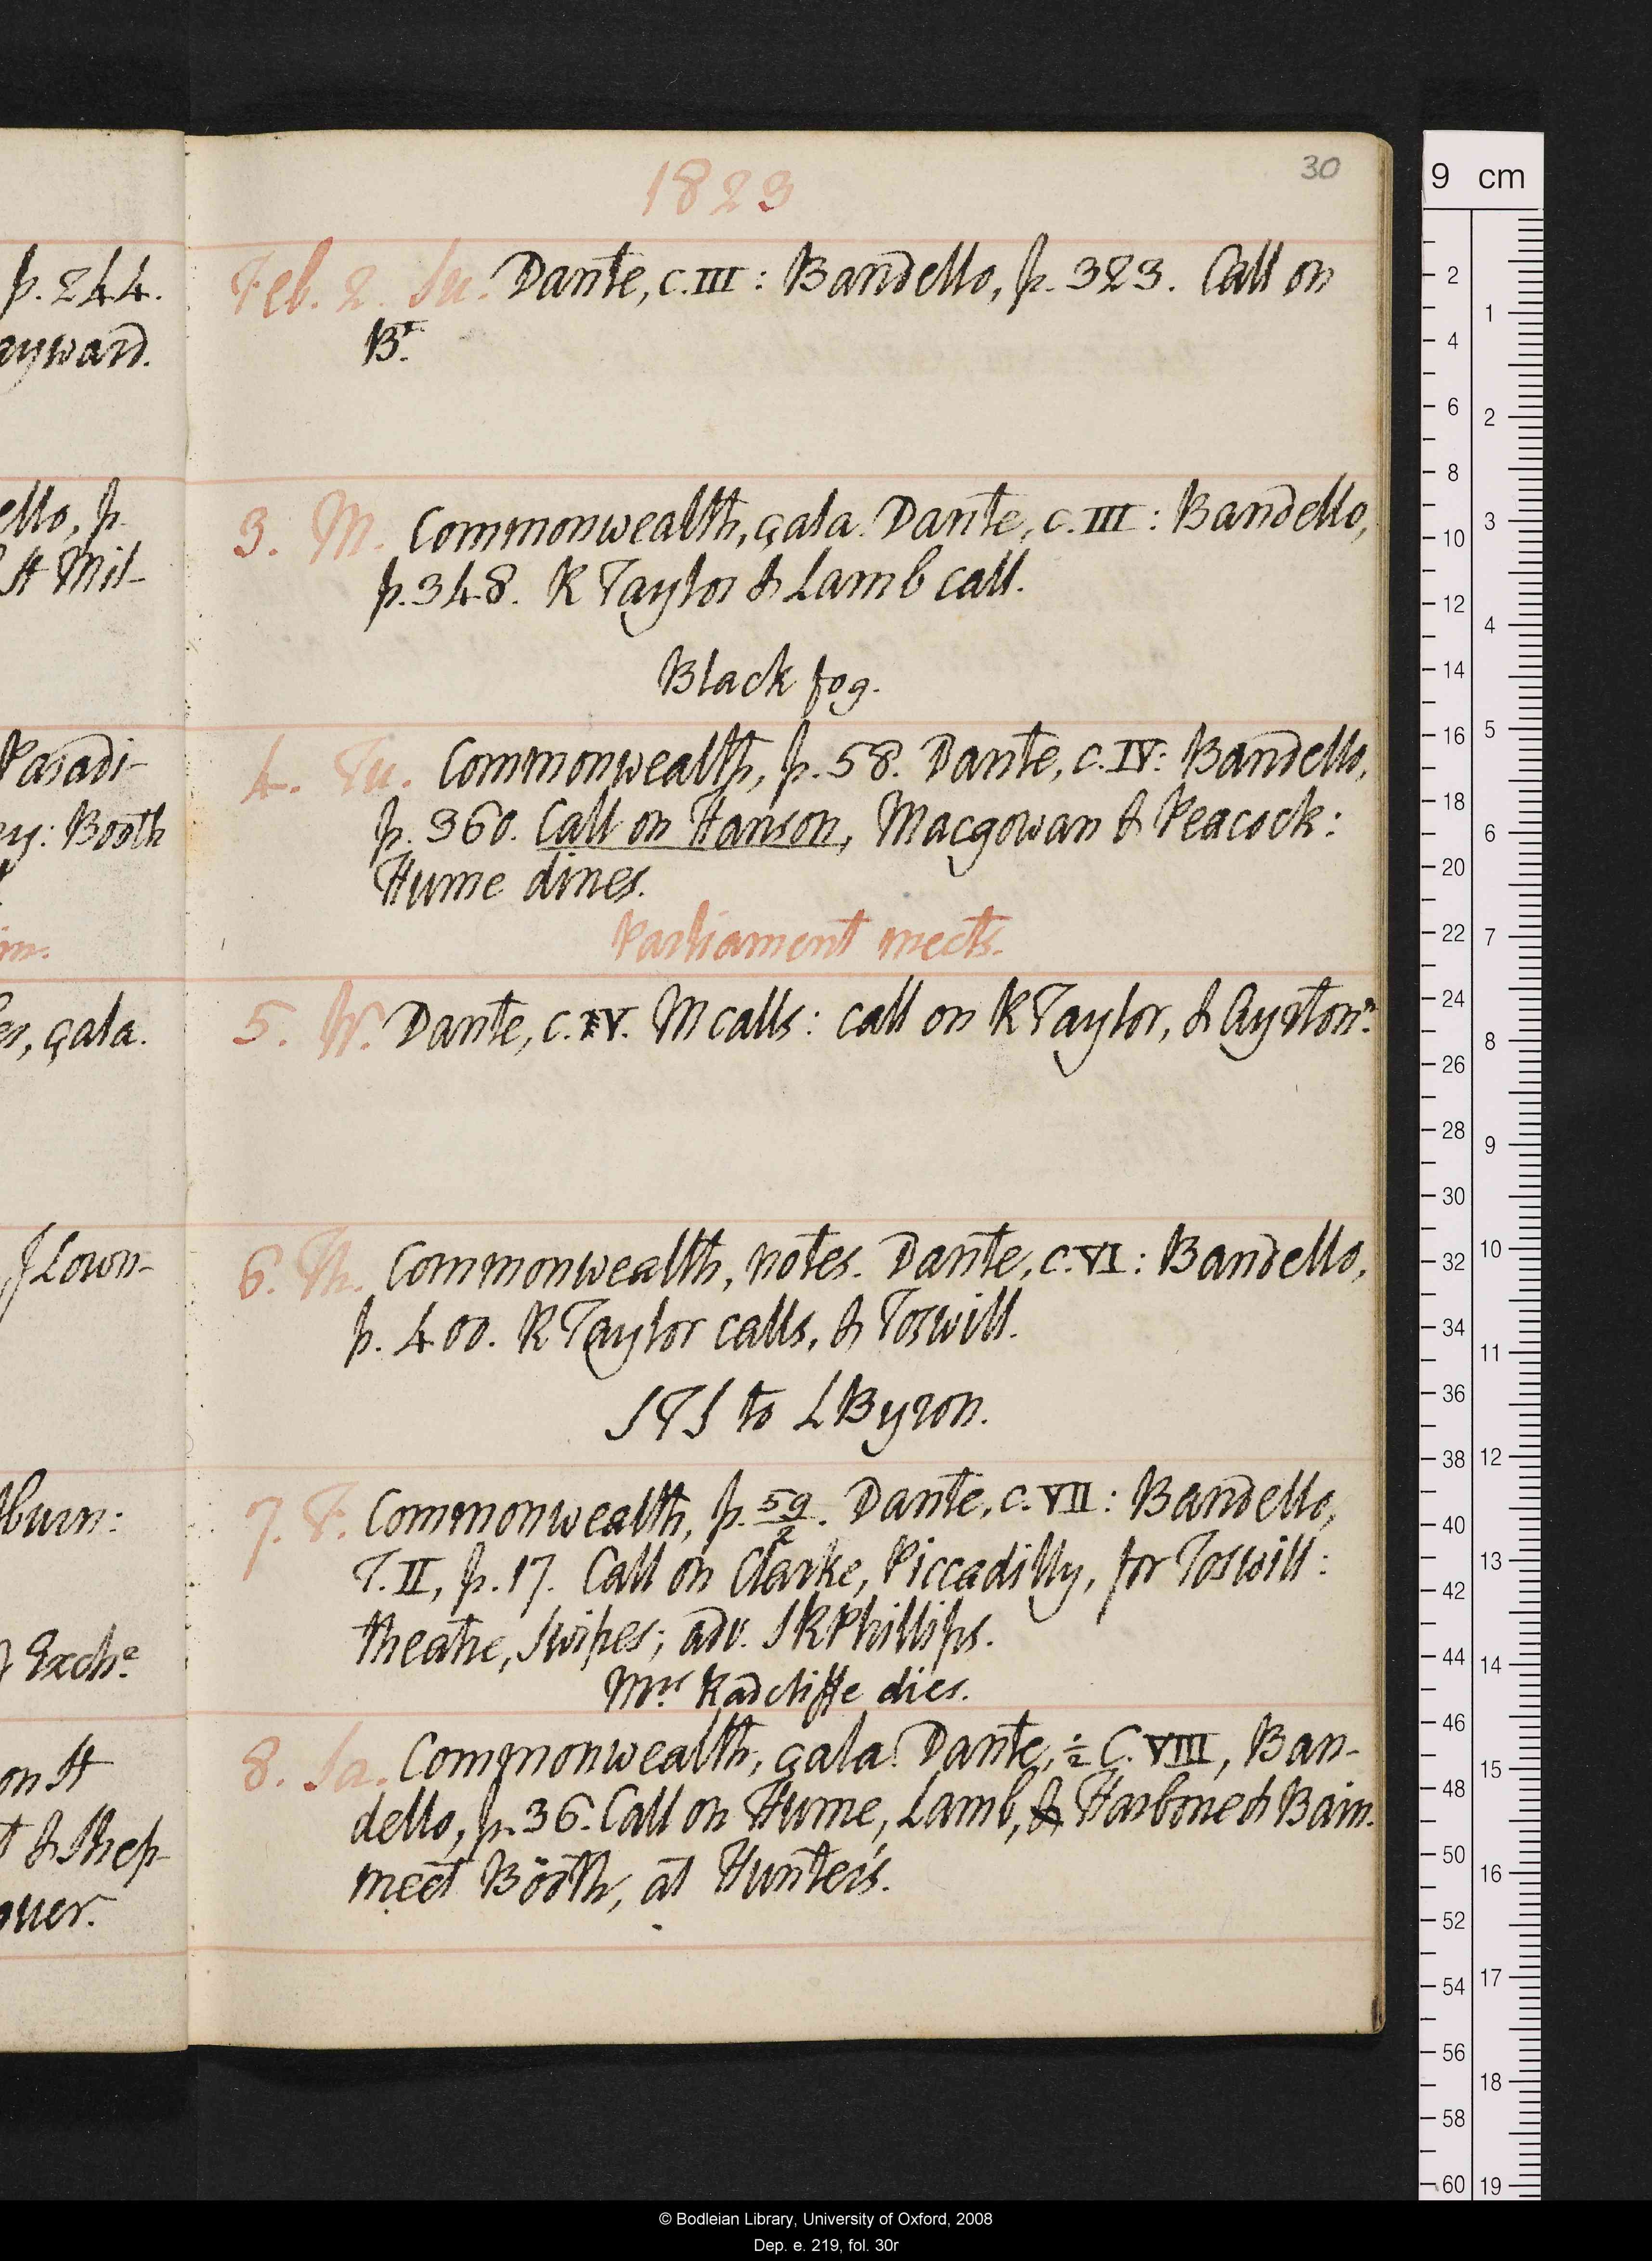 30
1823
p. 244.
ayward.
Feb. 2. Su. Dante, c. III: Bandello, p. 323. Call on
Bt.
ello, p.
St Mil-
3. M. Commonwealth, çala. Dante, c. III: Bandello,
p. 348. R Taylor & Lamb call.
Black fog.
Paradi-
ey: Booth
m.
4. Tu. Commonwealth, p. 58. Dante, c. IV: Bandello,
p. 360. Call on Hanson, Macgowan & Peacock:
Hume dines.
Parliament meets.
es, çala.
5. W. Dante, c. IV. M calls: call on R Taylor, & Ayrton n.
J Lown-
6. Th. Commonwealth, notes. Dante, c. VI: Bandello,
p. 400. R Taylor calls, & Toswill.
STS to L Byron.
lburn:
Exche.
7. F. Commonwealth, p. 59/2. Dante, c. VII: Bandello,
T. II, p. 17. Call on Clarke, Piccadilly, for Toswill:
theatre, Swipes; adv. S R Phillips.
Mrs Radcliffe dies.
on St
t & Shep-
ouer.
8. Sa. Commonwealth, çala. Dante, ½ C. VIII, Ban-
dello, p. 36. Call on Hume, Lamb, & Harbone & Bain.
meet Booth, at Hunter's.
9 cm
2
4
6
8
10
12
14
16
18
20
22
24
26
28
30
32
34
36
38
40
42
44
46
48
50
52
54
56
58
60
1
2
3
4
5
6
7
8
9
10
11
12
13
14
15
16
17
18
19
© Bodleian Library, University of Oxford, 2008
Dep. e. 219, fol. 30r